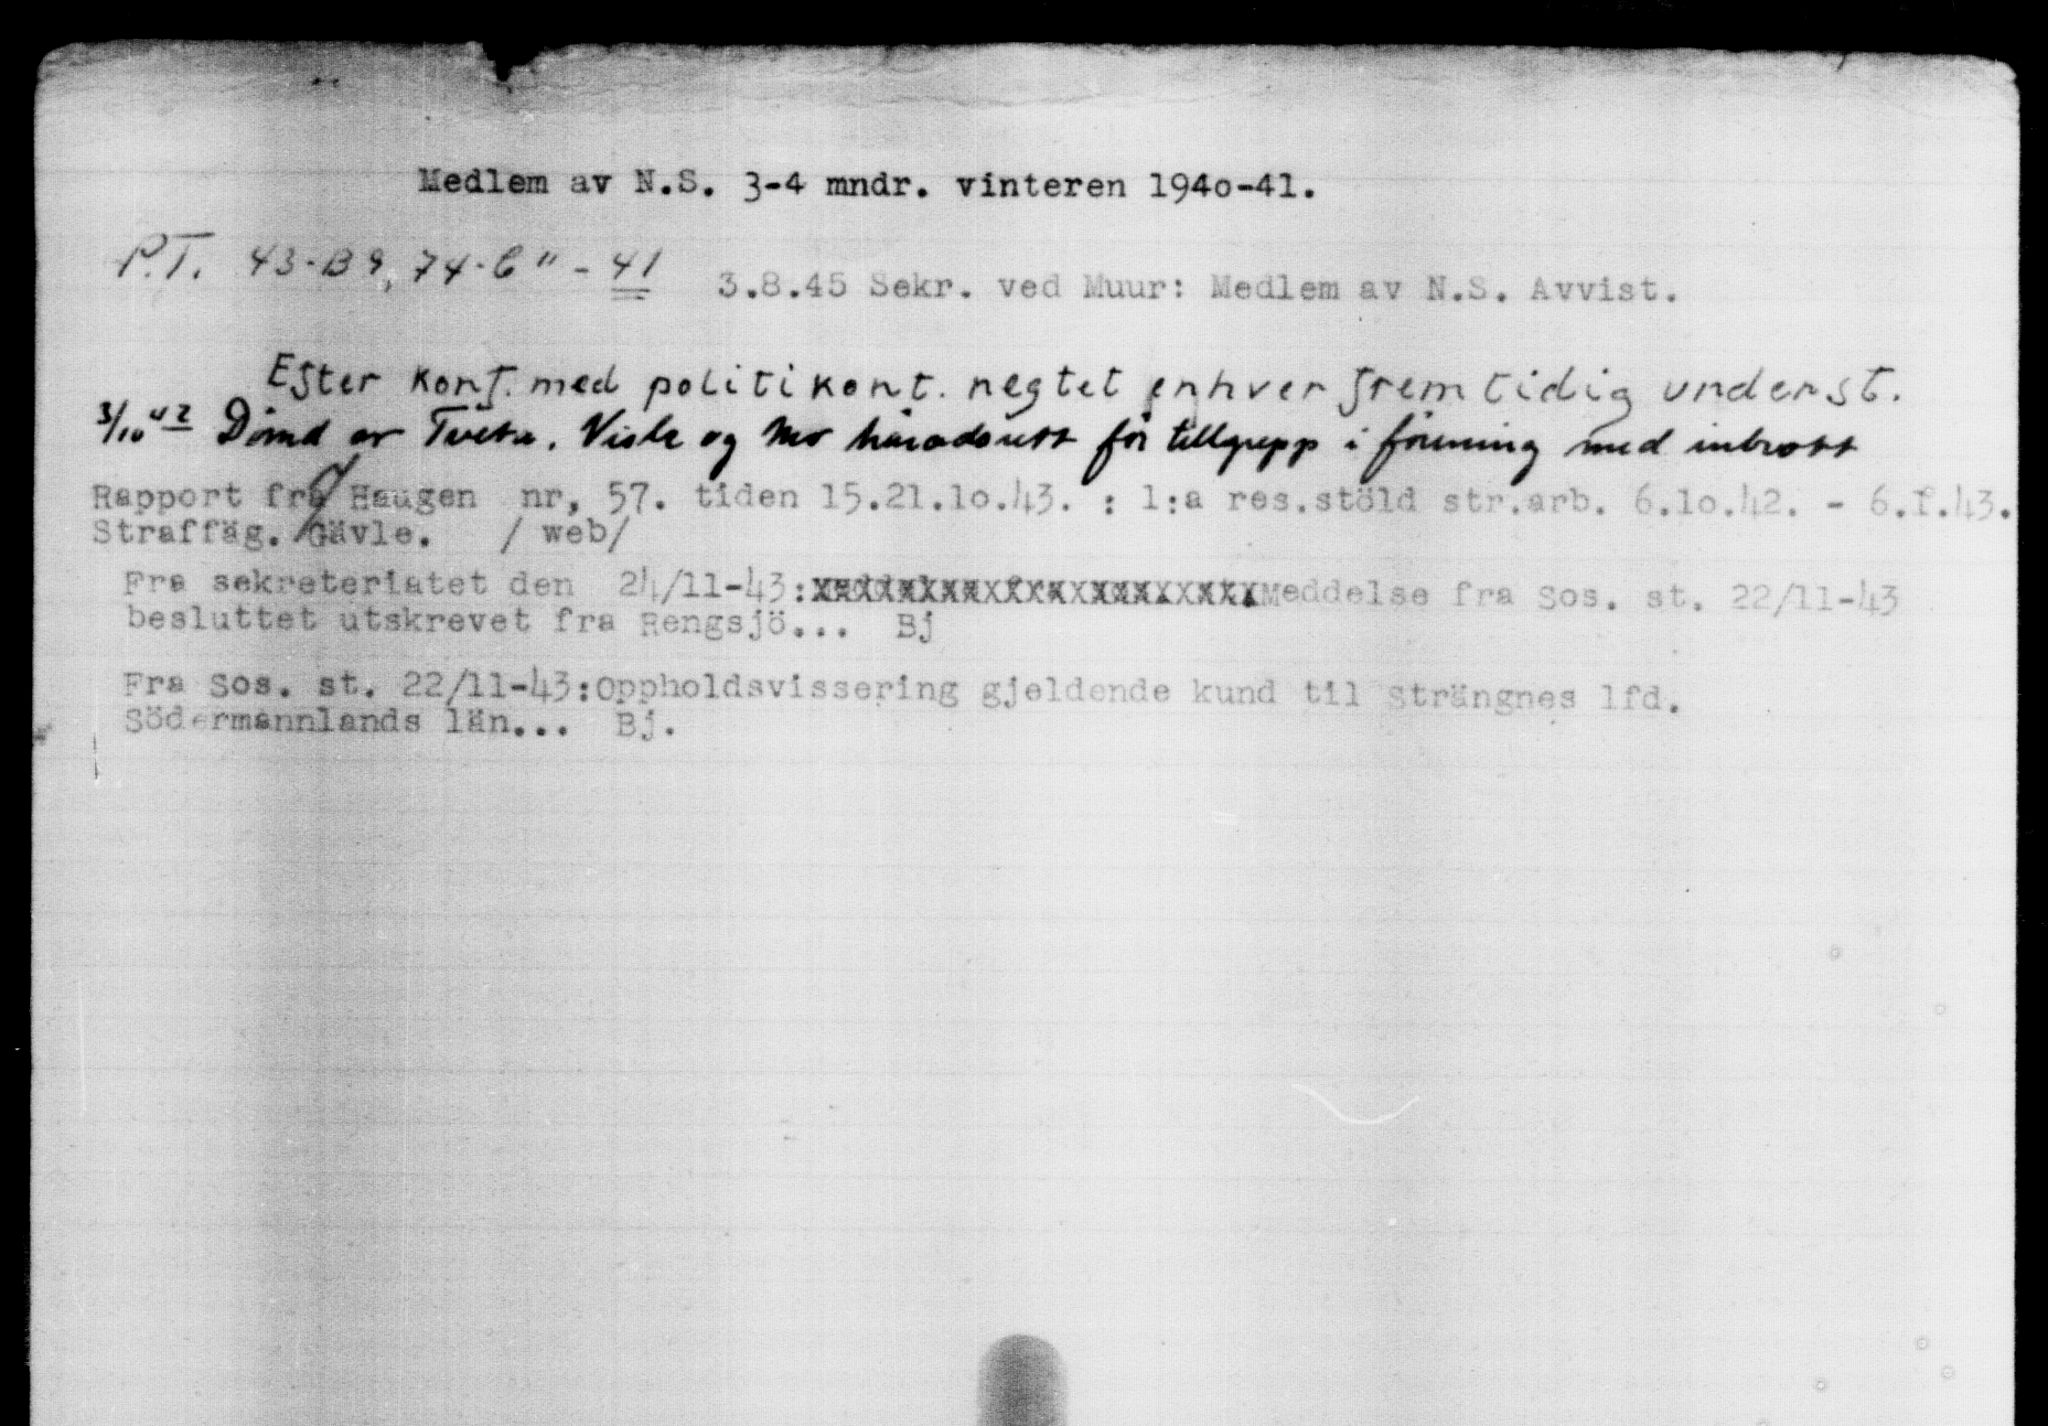 Medlem av N.S. 3-4 mndr. vinteren 194o-41.
P.T. 43-B9, 74-6" - 41
3.8.45 Sekr. ved Muur: Medlem av N.S. Avvist.
Efter konf. med politikont. negtet enhver fremtidig underst.
3/10 42 Dömd av Tveta, Vista og Mo häradsrett för tillgrepp i förening med inbrott
Rapport fra Haugen nr, 57. tiden 15.21.1o.43. : 1:a res.stöld str.arb. 6.1o.42. - 6.1.43.
Straffäg. Gävle. / web/
Fra sekreteriatet den 24/11-43: Meddelse fra Sos. st. 22/11-43
besluttet utskrevet fra Rengsjö... Bj
Fra Sos. st. 22/11-43:Oppholdsvissering gjeldende kund til Strängnes lfd.
Södermannlands län... Bj.